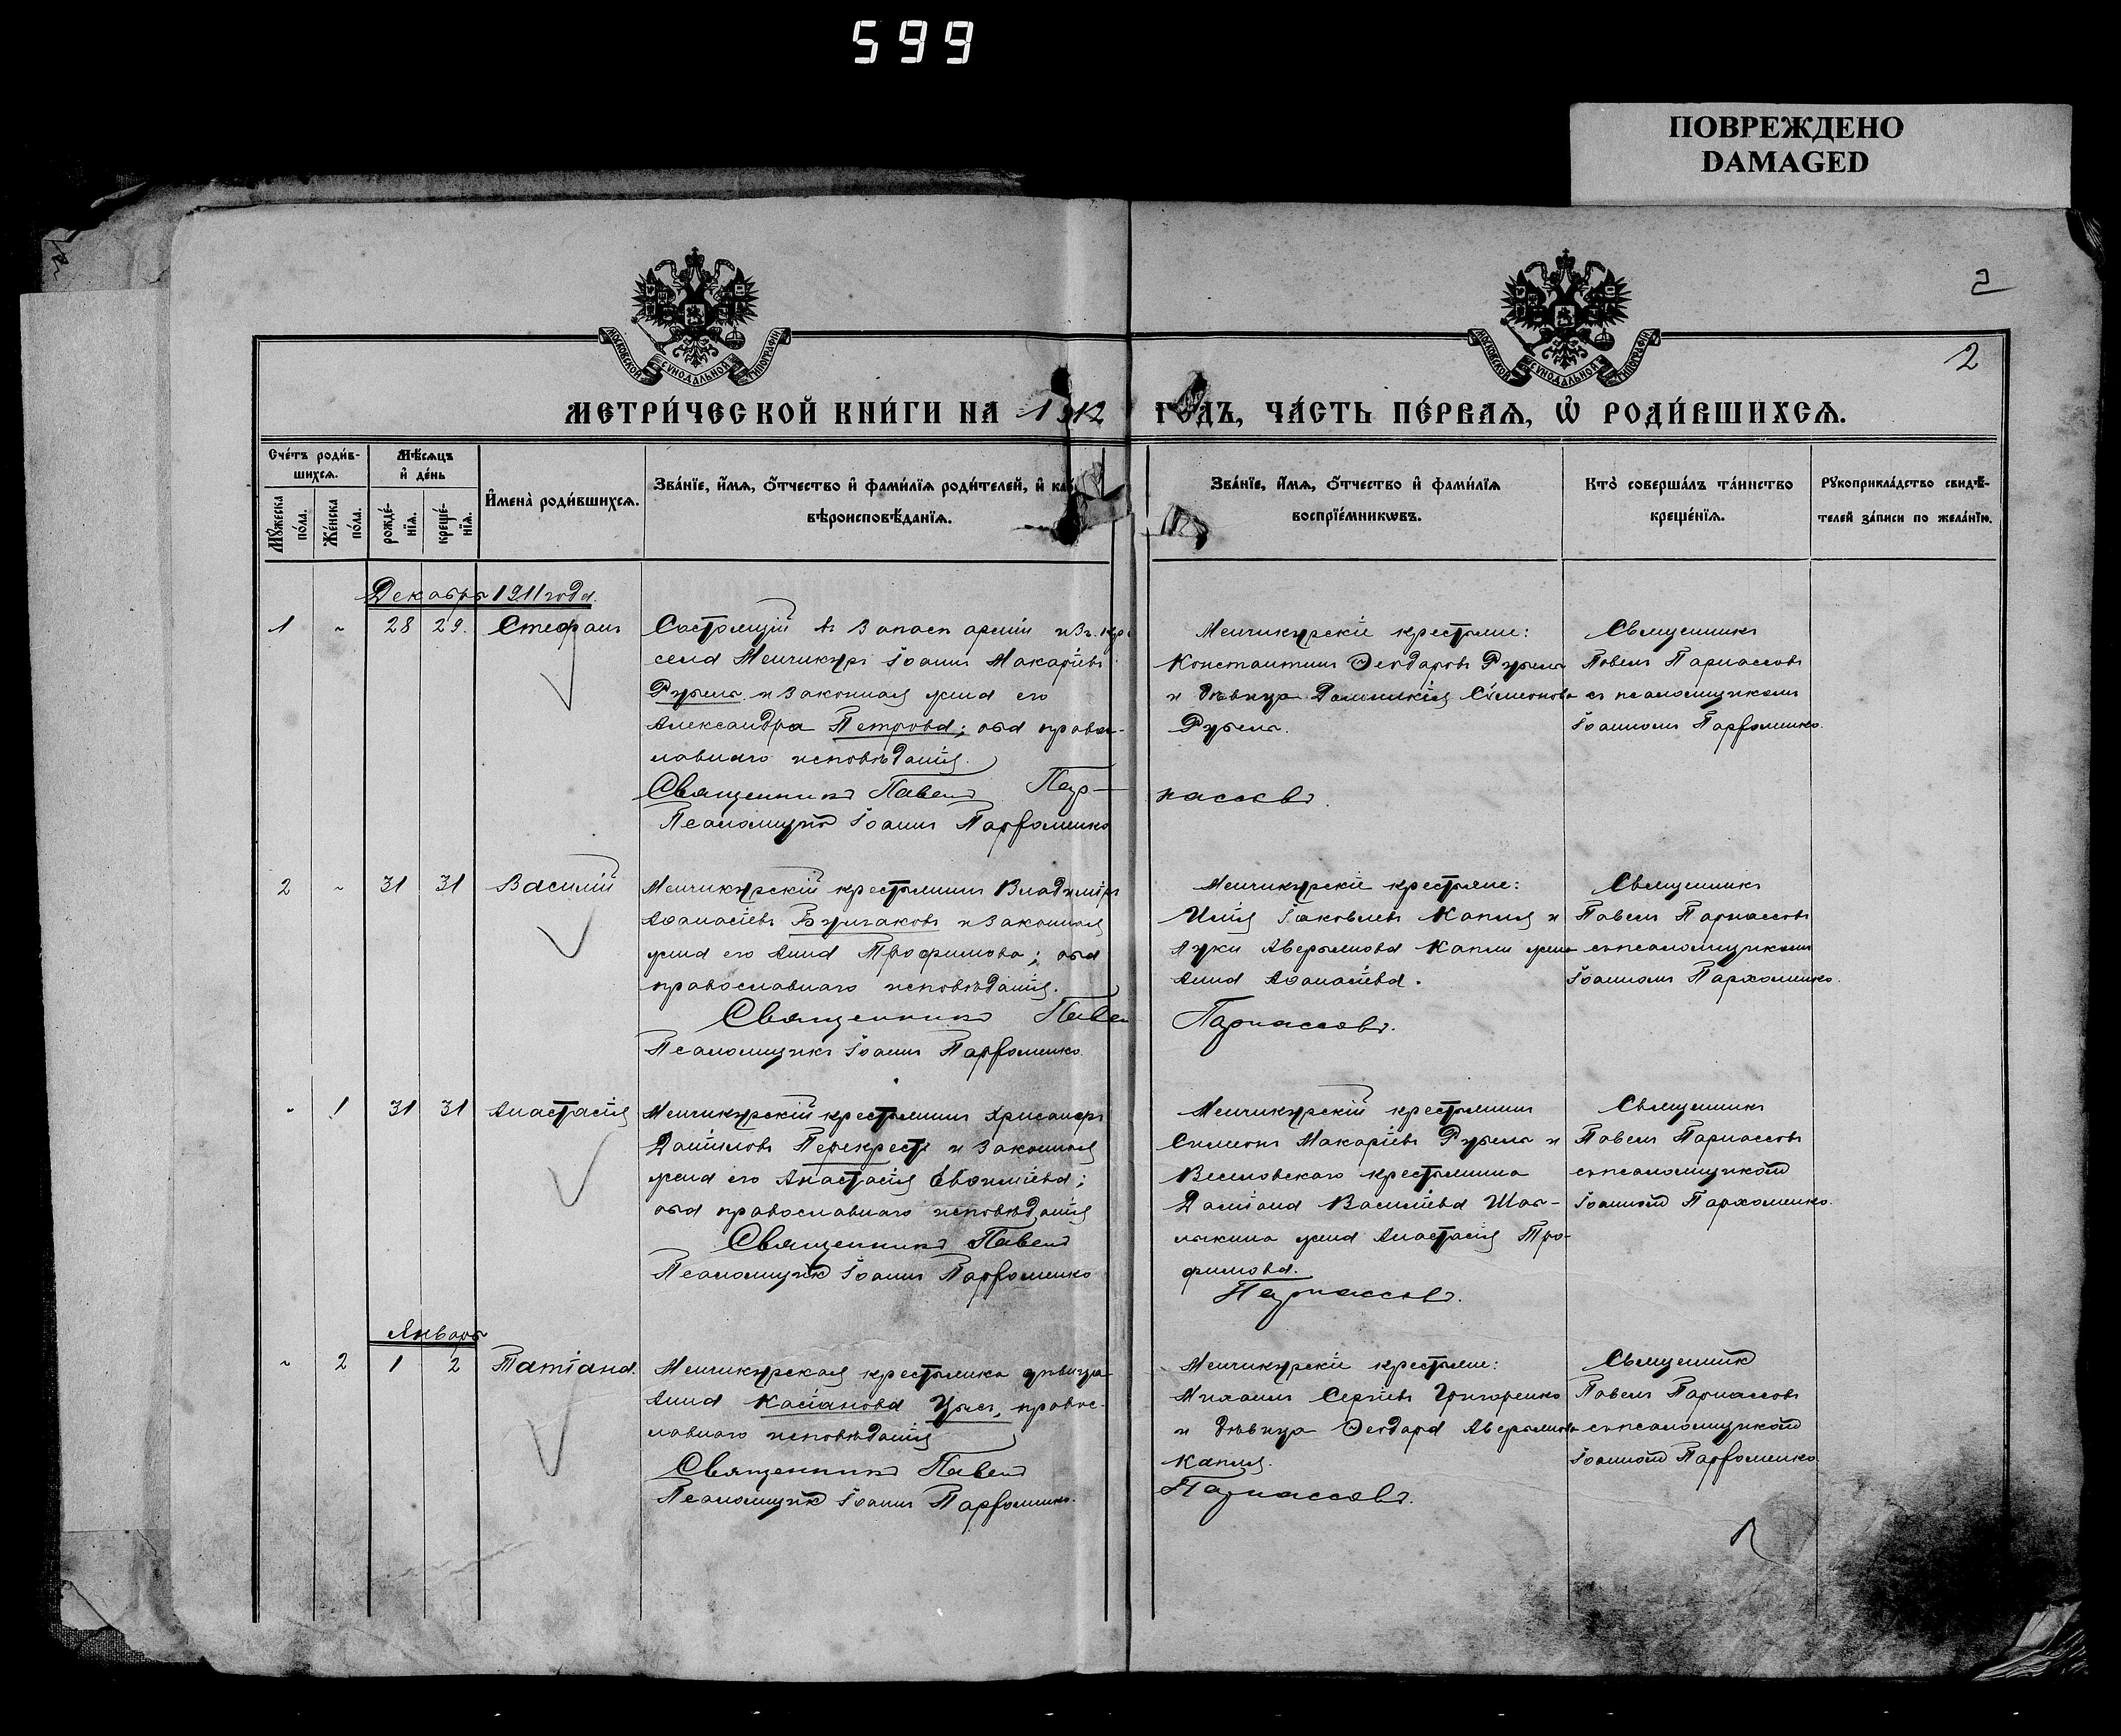 599
ПОВРЕЖДЕНО
DAMAGED
2
2
МОСКОВСКОЙ СѴНОДАЛЬНОЙ ТИПОГРАФІИ
МОСКОВСКОЙ СѴНОДАЛЬНОЙ ТИПОГРАФІИ
МЕТРИ́ЧЕСКОЙ КНИ́ГИ НА 1912 ГОДЪ, ЧА́СТЬ ПЕ́РВАѦ, Ѡ РОДИ́ВШИХСѦ.
Сче́тъ роди́в-
шихсѧ.
Мꙋ́жеска по́ла.
Же́нска по́ла.
Мѣ́сѧцъ
и҆ де́нь
рожде́-нїѧ.
креще́-нїѧ.
И҆мена̀ роди́вшихсѧ.
Зва́нїе, и҆́мѧ, ѻ҆́тчество и҆ фами́лїѧ роди́телей, и҆
вѣроисповѣ́данїѧ.
Зва́нїе, и҆́мѧ, ѻ҆́тчество и҆ фами́лїѧ
воспрїе́мникѡвъ.
Кто̀ соверша́лъ та́инство
креще́нїѧ.
Рꙋкоприкла́дство свидѣ́-
телей за́писи по жела́нїю.
Декабрь 1911 года.
1 " 28 29. Стефанъ
Состоящій въ запасѣ арміи изъ кр.
села Менчикуръ Іоаннъ Макаріевъ
Рубель и законная жена его
Александра Петрова; оба правос-
лавнаго исповѣданія.
Священникъ Павелъ Пар-
нассовъ.
Псаломщикъ Іоаннъ Парѳоменко
Менчикурскіе крестьяне:
Константинъ Ѳеодоровъ Рубель
и дѣвица Домникія Сѵмеонова
Рубель.
Священникъ
Павелъ Парнассовъ
съ псаломщикомъ
Іоанномъ Парѳоменко.
2 " 31 31 Василій
Менчикурскій крестьянинъ Владиміръ
Аѳанасіевъ Булгаковъ и законная
жена его Анна Трофимова; оба
православнаго исповѣданія.
Священникъ Павелъ
Парнассовъ.
Псаломщикъ Іоаннъ Парѳоменко
Менчикурскіе крестьяне:
Илія Іаковлевъ Капля и
Луки Аверьянова Капли жена
Анна Аѳанасіева.
Священникъ
Павелъ Парнассовъ
съ псаломщикомъ
Іоанномъ Пархоменко.
" 1 31 31 Анастасія
Менчикурскій крестьянинъ Хрисанѳъ
Даніиловъ Перекрестъ и законная
жена его Анастасія Евѳиміева;
оба православнаго исповѣданія
Священникъ Павелъ
Псаломщикъ Іоаннъ Парѳоменко
Менчикурскій крестьянинъ
Симеонъ Макаріевъ Рубель и
Веселовскаго крестьянина
Даміана Василіева Шаб-
лыкина жена Анастасія Тро-
фимова.
Парнассовъ.
Священникъ
Павелъ Парнассовъ
съ псаломщикомъ
Іоанномъ Пархоменко.
Январь
" 2 1 2 Татіана.
Менчикурская крестьянка дѣвица
Анна Касіанова Цысь, правос-
лавнаго исповѣданія
Священникъ Павелъ
Псаломщикъ Іоаннъ Парѳоменко.
Менчикурскіе крестьяне:
Михаилъ Сергіевъ Григоренко
и дѣвица Ѳеодора Аверьянова
Капля.
Парнассовъ.
Священникъ
Павелъ Парнассовъ
съ псаломщикомъ
Іоанномъ Парѳоменко.